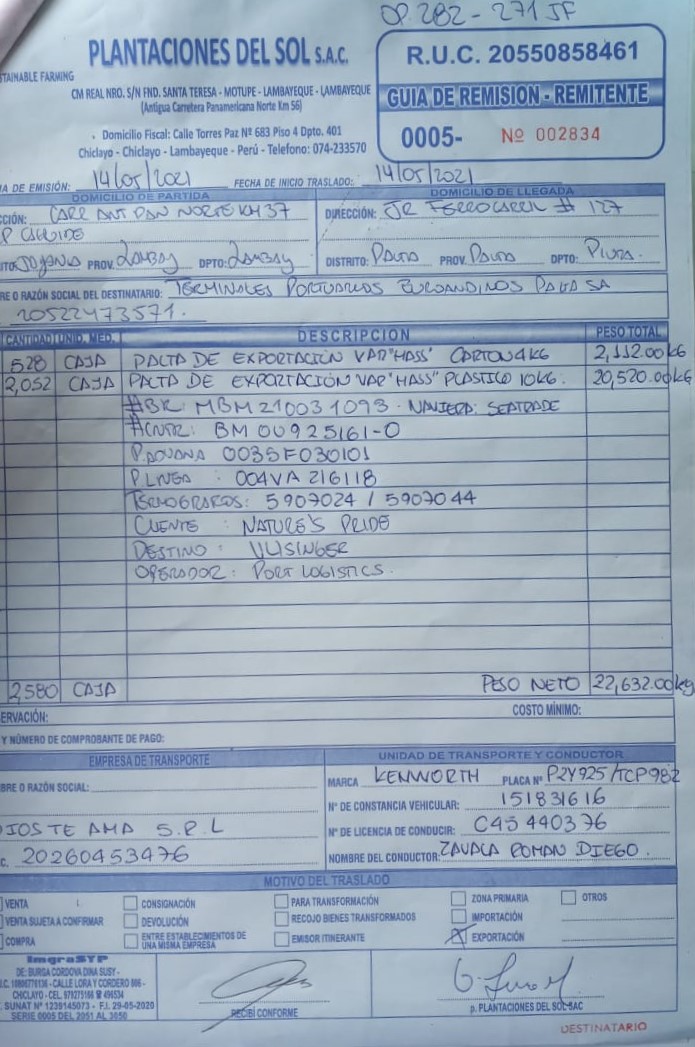 OP. 282 - 271 JF
PLANTACIONES DEL SOL S.A.C.
STAINABLE FARMING
CM REAL NRO. S/N FND. SANTA TERESA - MOTUPE - LAMBAYEQUE - LAMBAYEQUE
(Antigua Carretera Panamericana Norte Km 56)
Domicilio Fiscal: Calle Torres Paz Nº 683 Piso 4 Dpto. 401
Chiclayo - Chiclayo - Lambayeque - Perú - Telefono: 074-233570
R.U.C. 20550858461
GUIA DE REMISION - REMITENTE
0005- Nº 002834
A DE EMISIÓN: 14/05/2021 FECHA DE INICIO TRASLADO: 14/05/2021
DOMICILIO DE PARTIDA
CCIÓN: CARR ANT PAN NORTE KM 37
TO: PROV. LAMBAY DPTO: LAMBAY
DOMICILIO DE LLEGADA
DIRECCIÓN: JR FERROCARRIL # 127
DISTRITO: PAITA PROV. PAITA DPTO: PIURA.
RE O RAZÓN SOCIAL DEL DESTINATARIO: TERMINALES PORTUARIOS EUROANDINOS PAITA SA
20522473571.
CANTIDAD UNID. MED. DESCRIPCION PESO TOTAL
528 CAJA PALTA DE EXPORTACIÓN VAR "HASS" CARTON 4KG 2,112.00 KG
2,052 CAJA PALTA DE EXPORTACIÓN VAR "HASS" PLASTICO 10KG. 20,520.00 KG
#BK: MBM210031093 - NAVIERA: SEATRADE
#CNTR: BMOU925161-0
P.ADUANA 0035F030101
P.LINEA : 004VA216118
TERMOGRAFOS: 5907024 / 5907044
CLIENTE : NATURE'S PRIDE
DESTINO : VLISINGER
OPERADOR : PORT LOGISTICS.
2580 CAJA PESO NETO 22,632.00 kg
ERVACIÓN: COSTO MÍNIMO:
Y NÚMERO DE COMPROBANTE DE PAGO:
EMPRESA DE TRANSPORTE
BRE O RAZÓN SOCIAL:
JOSTE AMA S.R.L
C. 20260453476
UNIDAD DE TRANSPORTE Y CONDUCTOR
MARCA KENWORTH PLACA Nº P2Y925/TCP982
Nº DE CONSTANCIA VEHICULAR: 151831616
Nº DE LICENCIA DE CONDUCIR: C45440376
NOMBRE DEL CONDUCTOR: ZAVALA ROMAN DIEGO.
MOTIVO DEL TRASLADO
VENTA CONSIGNACIÓN PARA TRANSFORMACIÓN ZONA PRIMARIA OTROS
VENTA SUJETA A CONFIRMAR DEVOLUCIÓN RECOJO BIENES TRANSFORMADOS IMPORTACIÓN
COMPRA ENTRE ESTABLECIMIENTOS DE UNA MISMA EMPRESA EMISOR ITINERANTE X EXPORTACIÓN
ImgraSYP
DE: BURGA CORDOVA DINA SUSY -
- CALLE LORA Y CORDERO 886 -
CHICLAYO - CEL. 979275166 ☎ 496534
SUNAT Nº 1239145073 - F.I. 29-05-2020
SERIE 0005 DEL 2051 AL 3050
RECIBÍ CONFORME
p. PLANTACIONES DEL SOL SAC
DESTINATARIO